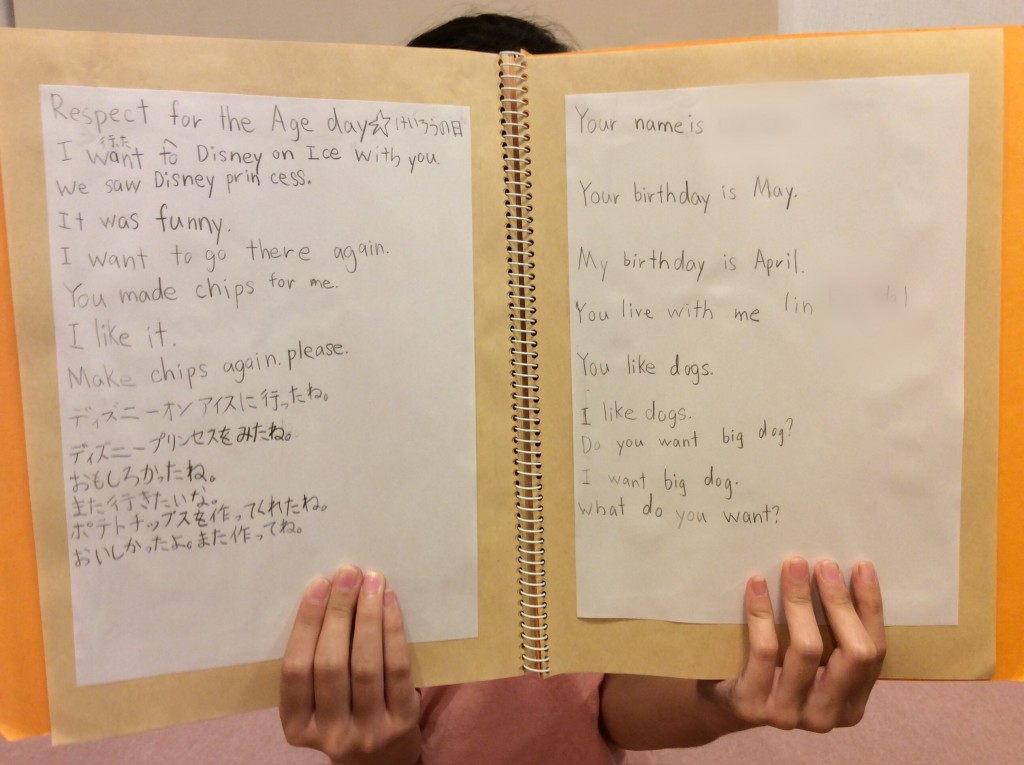 Respect for the Age day☆けいろうの日
行った
I want to Disney on Ice with you.
We saw Disney prin cess.
It was funny.
I want to go there again.
You made chips for me.
I like it.
Make chips again. please.
ディズニーオンアイスに行ったね。
ディズニープリンセスをみたね。
おもしろかったね。
また行きたいな。
ポテトチップスを作ってくれたね。
おいしかったよ。また作ってね。
Your name is
Your birthday is May.
My birthday is April.
You live with me in
You like dogs.
I like dogs.
Do you want big dog?
I want big dog.
What do you want?